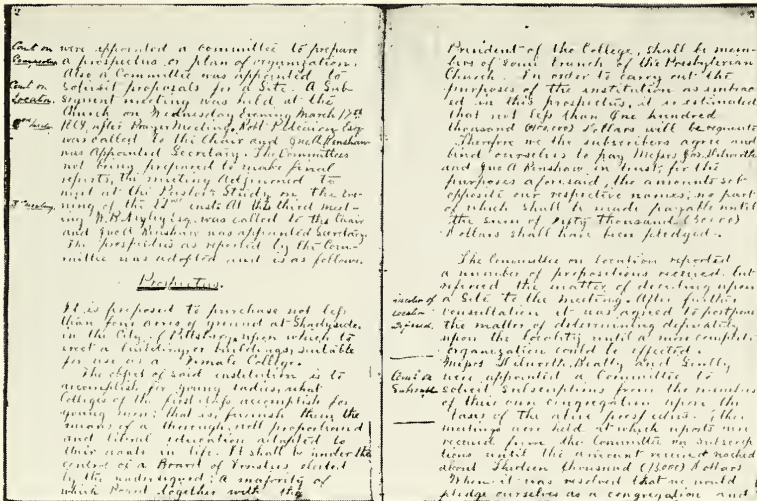 2
Com on
Prospectus
were appointed a committee to prepare
a prospectus or plan of organization.
Also a Committee was appointed to
Com on
Location
solicit proposals for a Site. A Sub-
sequent meeting was held at the
Church on Wednesday evening March 17th
1869, after Prayer Meeting. Robt Esq
was called to the Chair and Renshaw
was Appointed Secretary. The Committees
not being prepared to make final
reports, the meeting Adjourned to
meet at the Pastor's Study, on the eve-
3 Meeting
ning of the 22nd inst. At this third meet-
ing W.R. Esq. was called to the Chair
and Renshaw was appointed Secretary.
The prospectus as reported by the Com-
mittee was adopted and is as follows.
Prospectus.
It is proposed to purchase not less
than four acres of ground at Shadyside
in the City of Pittsburg, upon which to
erect a building or buildings, suitable
for use as a Female College.
The object of said institution is to
accomplish for young ladies, what
Colleges of the first class, accomplish for
young men; that is, furnish them the
means of a thorough, well proportioned
and liberal education adapted to
their wants in life. It shall be under the
control of a Board of Trustees, elected
by the undersigned; a majority of
which Board together with the
3
President of the College, shall be mem-
bers of some branch of the Presbyterian
Church. In order to carry out the
purposes of the institution as embrac-
ed in this prospectus, it is estimated
that not less than One hundred
thousand (100,000) Dollars will be
Therefore we the subscribers agree and
bind ourselves to pay Messrs Jos. Dilworth
and Renshaw, in trust, for the
purposes aforesaid, the amounts set
opposite our respective names; no part
of which shall be made payable until
the sum of Fifty Thousand (50000)
Dollars shall have been pledged.
The Committee on Location reported
a number of propositions received, but
referred the matter of deciding upon
Location
a Site to the meeting. After further
consultation it was agreed to postpone
the matter of determining definitely
upon the locality until a more complete
organization could be effected.
Messrs Dilworth, Beatty and Scully
Com on
were appointed a Committee to
solicit Subscriptions from the members
of their own congregation upon the
bases of the above prospectus.
meetings were held at which reports were
received from the Committee on Subscrip-
tions until the amount received reached
about Thirteen thousand (13000) Dollars
When it was resolved that we would
pledge ourselves as a congregation and